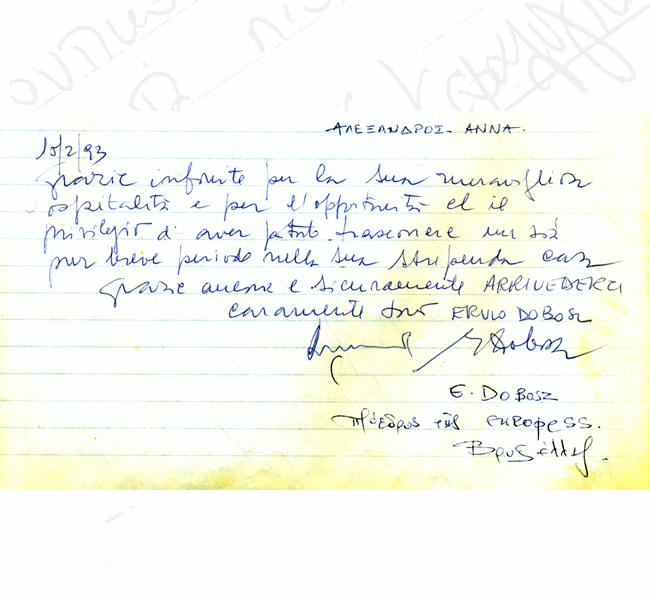 ΑΛΕΞΑΝΔΡΟΣ - ΑΝΝΑ.
15/2/93
grazie infinite per la sua meravigliosa
ospitalità e per l'opportunità ed il
privilegio di aver potuto trascorrere un sia
pur breve periodo nella sua stupenda casa
grazie ancora e sicuramente ARRIVEDERCI
caramente suo ERVIO DOBOSZ
E Dobosz
E. DOBOSZ
Πρόεδρος της EUROPESS.
Βρυξέλλες.